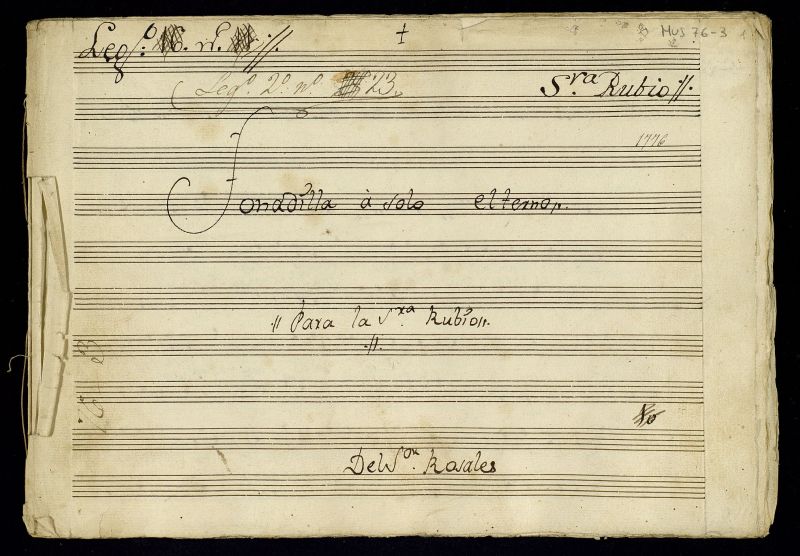 Leg.º n.º
MUS 76-3
Leg.º 2.º n.º 23.
S.ra Rubio
1776
Tonadilla à solo el terno
Para la S.ra Rubio
Del S.or Rosales